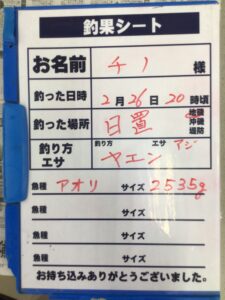 釣果シート
お名前 チノ 様
釣った日時 2月26日20時頃
釣った場所 日置 地磯 沖磯 堤防
釣り方 エサ 釣り方 ヤエン エサ アジ
魚種 アオリ サイズ 2535g
魚種 サイズ
魚種 サイズ
魚種 サイズ
お持ち込みありがとうございました。